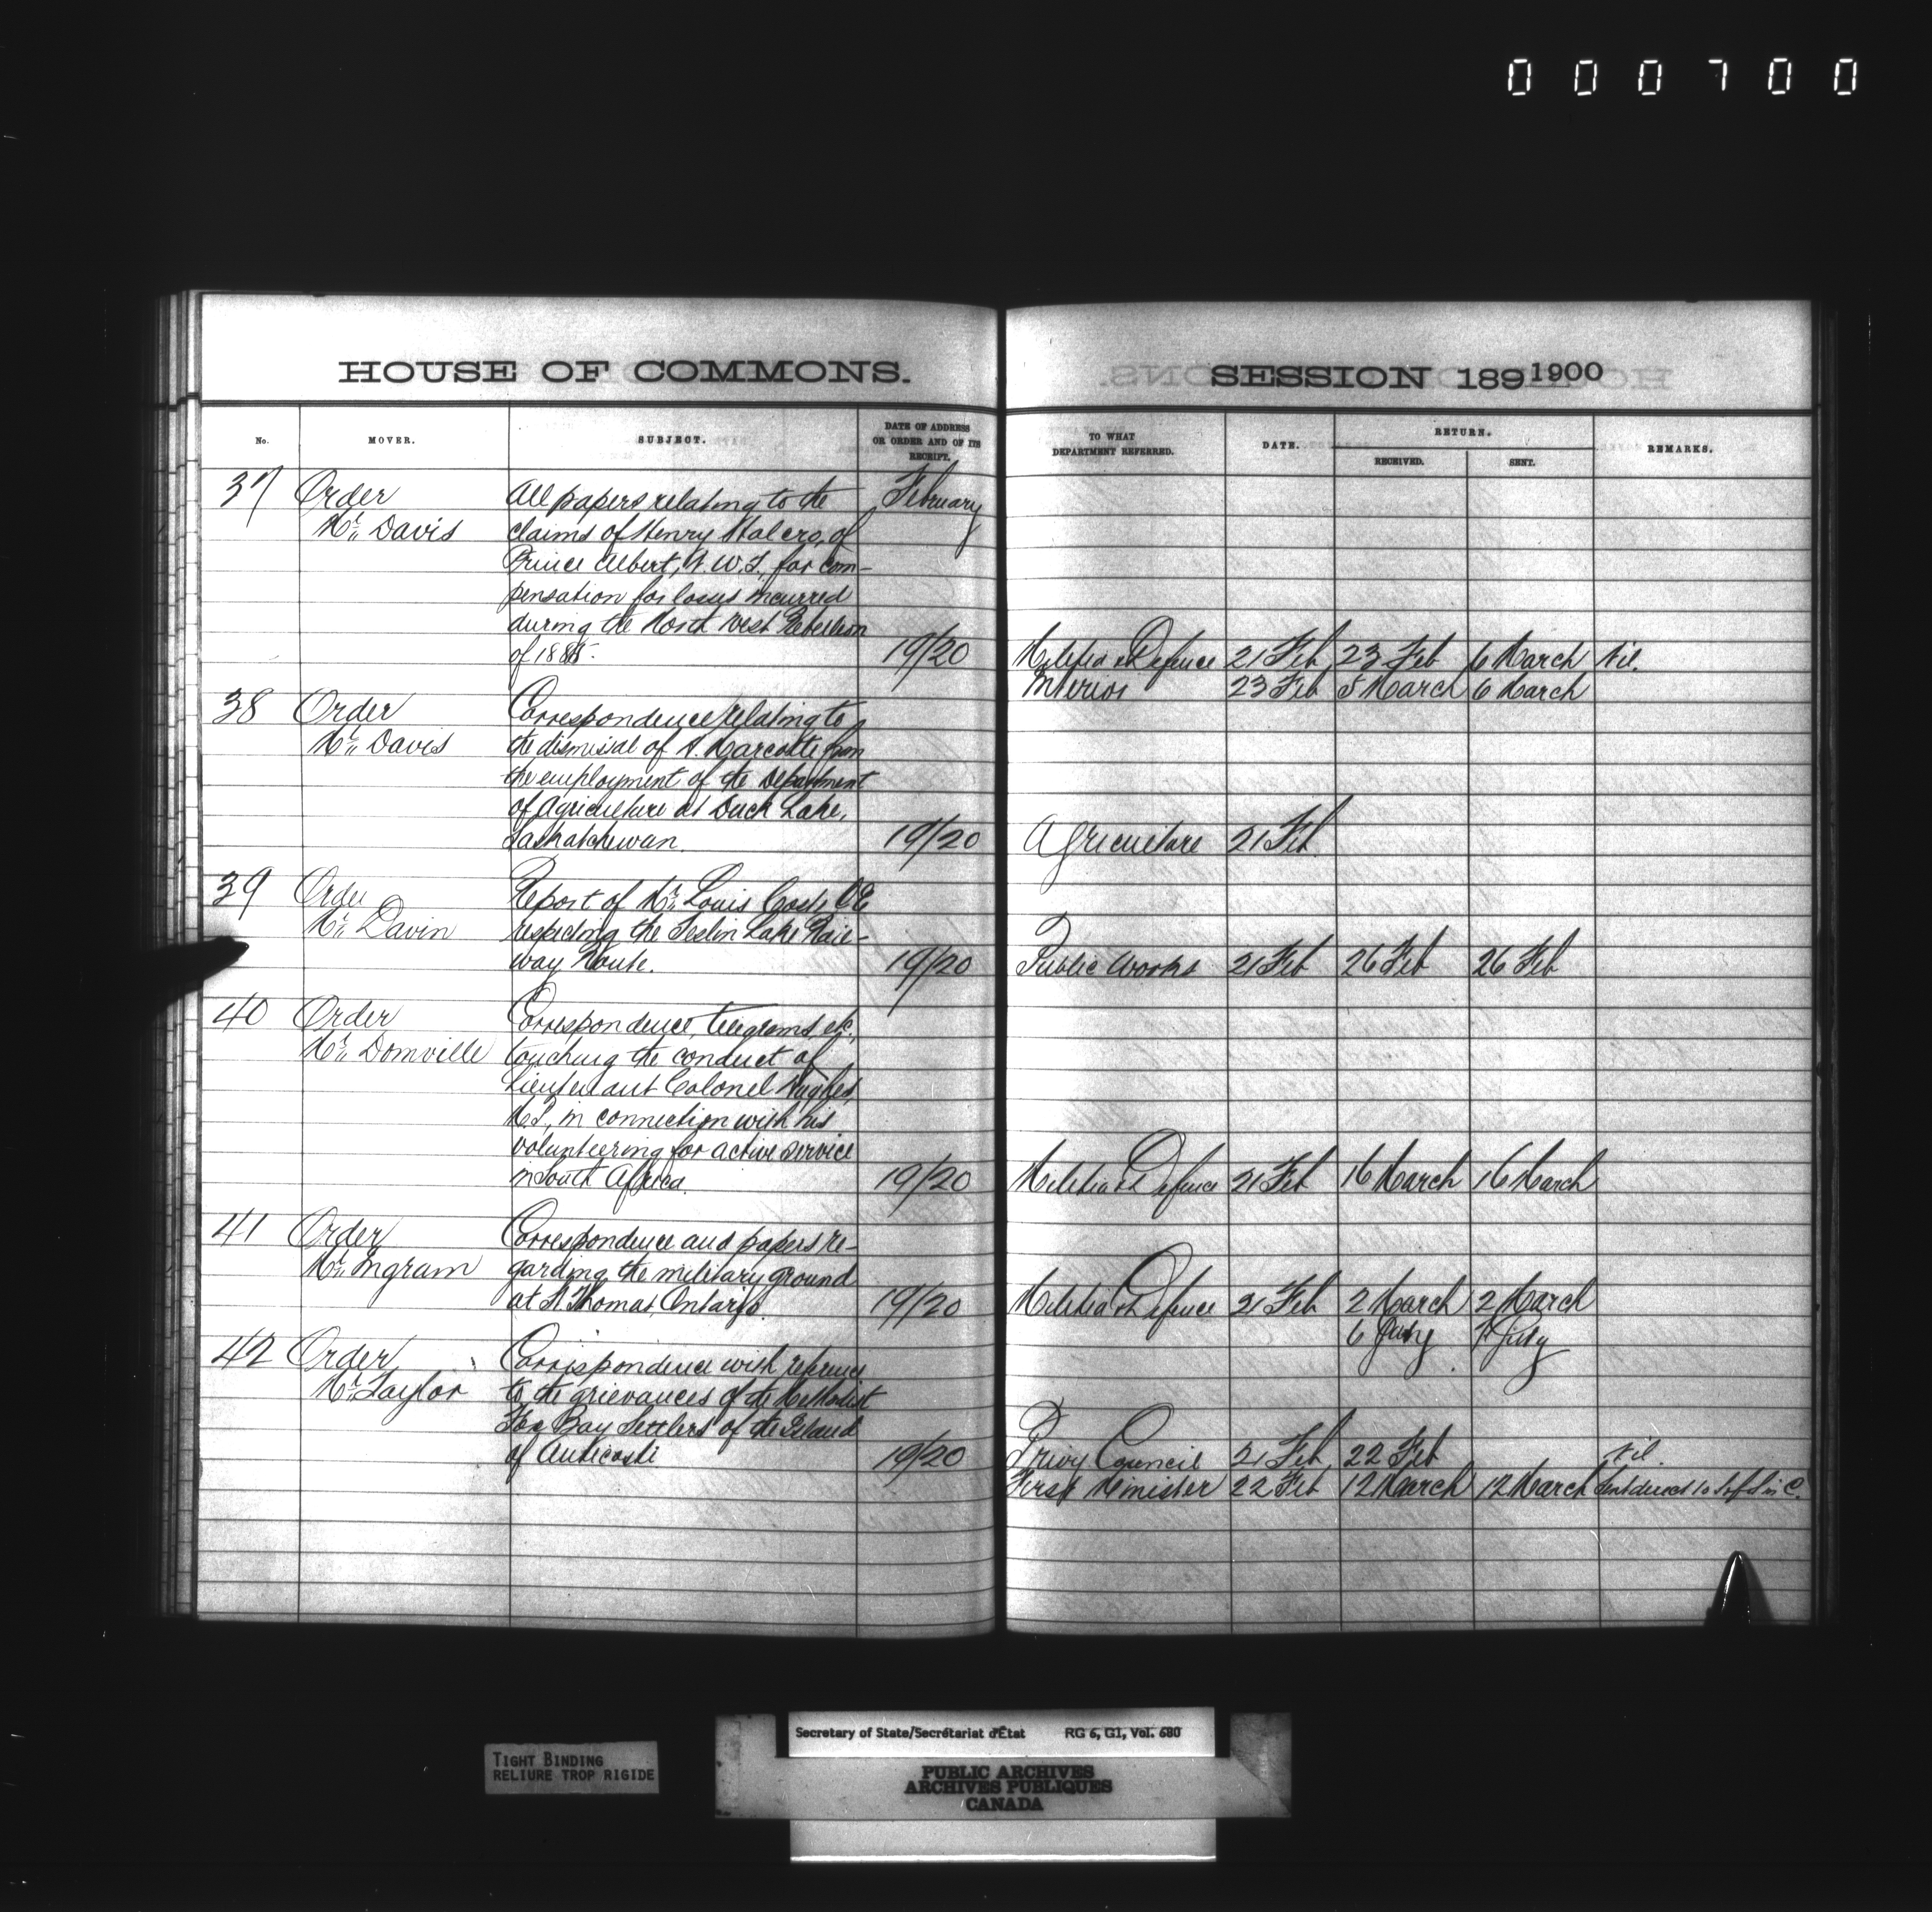 000700
HOUSE OF COMMONS.
No.
MOVER.
SUBJECT.
DATE OF ADDRESS
OR ORDER AND OF ITS
RECEIPT.
37
Order
Mr. Davis
All papers relating to the
claims of Henry of
Prince Albert, N.W.T., for com-
pensation for losses incurred
during the North West Rebellion
of 1885.
February
19/20
38
Order
Mr. Davis
Correspondence relating to
the dismissal of A. Marcotte from
the employment of the Department
of Agriculture at Duck Lake,
Saskatchewan.
19/20
39
Order
Mr. Davin
Report of Mr. Louis Coste CE
respecting the Teslin Lake Rail-
way Route.
19/20
40
Order
Mr. Domville
Correspondence, telegrams, etc.,
touching the conduct of
Lieutenant Colonel Hughes,
M.P., in connection with his
volunteering for active service
in South Africa.
19/20
41
Order
Mr. Ingram
Correspondence and papers re-
garding the military ground
at St. Thomas, Ontario.
19/20
42
Order
Mr. Taylor
Correspondence with reference
to the grievances of the Methodist
Fox Bay Settlers of the Island
of Anticosti
19/20
SESSION 189 1900
TO WHAT
DEPARTMENT REFERRED.
DATE.
RETURN.
RECEIVED.
SENT.
REMARKS.
Militia & Defence 21 Feb 23 Feb 6 March Nil.
Interior 23 Feb 5 March 6 March
Agriculture 21 Feb
Public Works 21 Feb 26 Feb 26 Feb
Militia & Defence 21 Feb 16 March 16 March
Militia & Defence 21 Feb 2 March 2 March
6 July 7 July
Privy Council 21 Feb 22 Feb Nil.
First Minister 22 Feb 12 March 12 March Sent direct to
TIGHT BINDING
RELIURE TROP RIGIDE
Secretary of State/Secrétariat d'État RG 6, G1, Vol. 680
PUBLIC ARCHIVES
ARCHIVES PUBLIQUES
CANADA